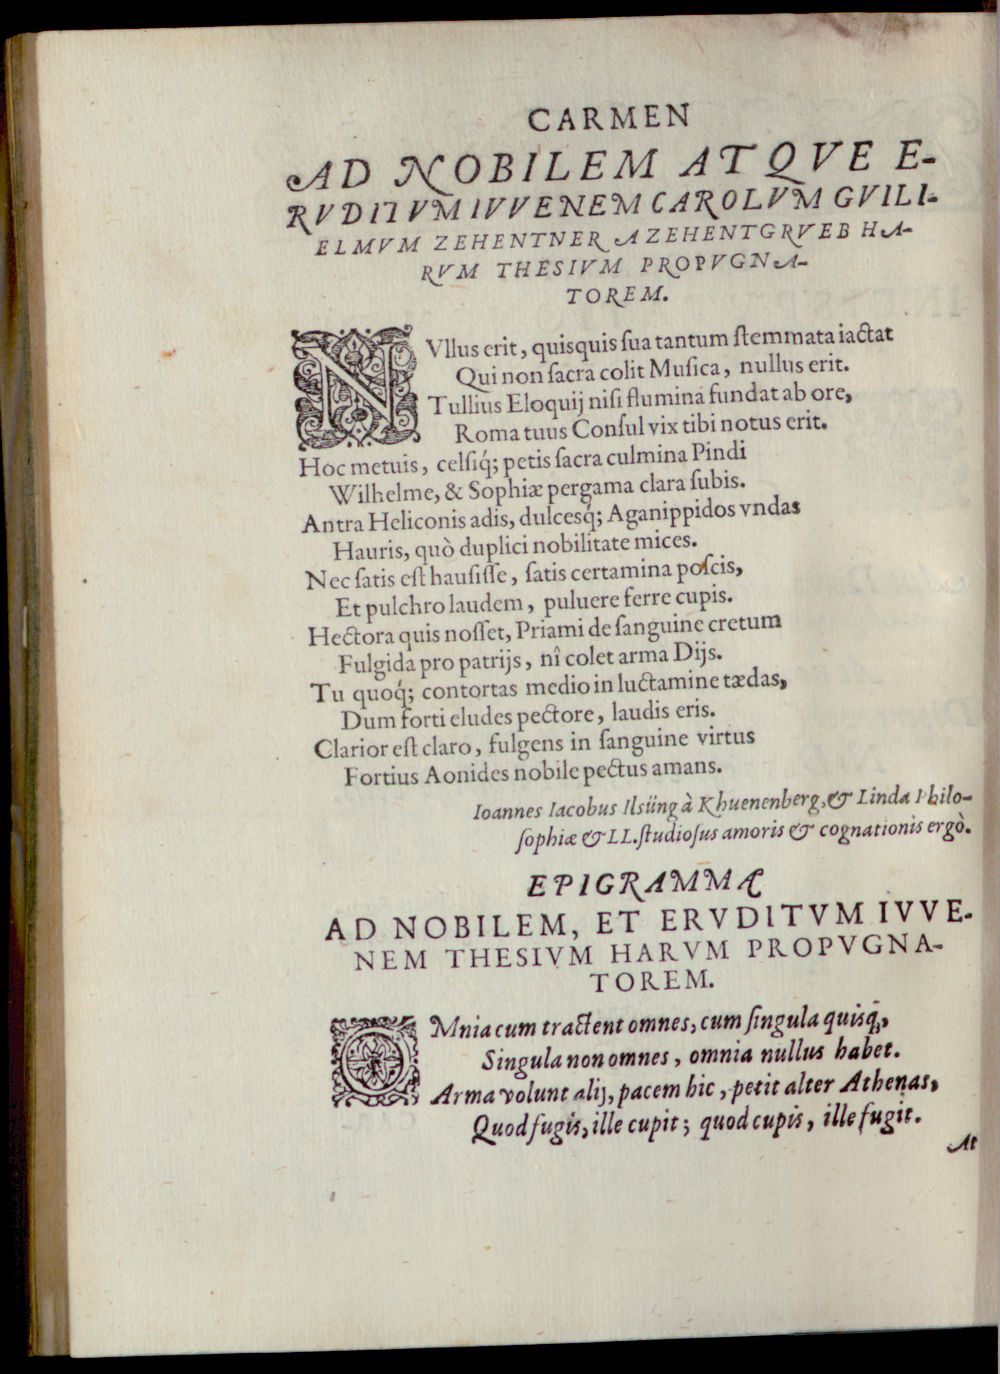 CARMEN
AD NOBILEM ATQVE E-
RVDITVM IVVENEM CAROLVM GVILI-
ELMVM ZEHENTNER A ZEHENTGRVEB HA-
RVM THESIVM PROPVGNA-
TOREM.
NVllus erit, quisquis ſua tantum ſtemmata iactat
Qui non ſacra colit Muſica, nullus erit.
Tullius Eloquij niſi flumina fundat ab ore,
Roma tuus Conſul vix tibi notus erit.
Hoc metuis, celſiq́; petis ſacra culmina Pindi
Wilhelme, & Sophiæ pergama clara ſubis.
Antra Heliconis adis, dulcesq́; Aganippidos vndas
Hauris, quò duplici nobilitate mices.
Nec ſatis eſt hauſiſſe, ſatis certamina poſcis,
Et pulchro laudem, puluere ferre cupis.
Hectora quis noſſet, Priami de ſanguine cretum
Fulgida pro patrijs, nî colet arma Dijs.
Tu quoq́; contortas medio in luctamine tædas,
Dum forti eludes pectore, laudis eris.
Clarior eſt claro, fulgens in ſanguine virtus
Fortius Aonides nobile pectus amans.
Ioannes Iacobus Ilsüng à Khuenenberg, & Linda Philo-
ſophiæ & LL. ſtudioſus amoris & cognationis ergò.
EPIGRAMMA
AD NOBILEM, ET ERVDITVM IVVE-
NEM THESIVM HARVM PROPVGNA-
TOREM.
OMnia cum tractent omnes, cum ſingula quisq́;,
Singula non omnes, omnia nullus habet.
Arma volunt alij, pacem hic, petit alter Athenas,
Quod fugis, ille cupit; quod cupis, ille fugit.
At